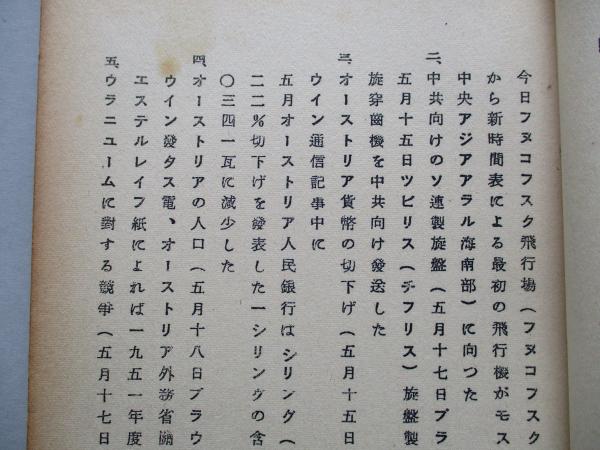 今日フヌコフスク飛行場(フヌコフスク
から新時間表による最初の飛行機がモス
中央アジアアラル海南部)に向つた
二、中共向けのソ連製旋盤(五月十七日プラ
五月十五日ツビリス(チフリス)旋盤製
旋穿歯機を中共向け發送した
三、オーストリア貨幣の切下げ(五月十五日
ウイン通信記事中に
五月オーストリア人民銀行はシリング(
二二%切下げを發表した一シリングの含
〇三四一瓦に減少した
四、オーストリアの人口(五月十八日プラウ
ウイン發タス電、オーストリア外務省
エステルレイフ紙によれば一九五一年度
五、ウラニユームに對する競爭(五月十七日